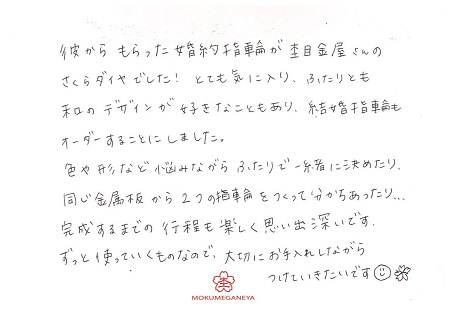 彼から もらった 婚約指輪が 杢目金屋さんの
さくらダイヤでした! とても気に入り、ふたりとも
和のデザインが好きなこともあり、結婚指輪も
オーダーすることにしました。
色や形など悩みながら ふたりで一緒に決めたり、
同じ金属板から2つの指輪をつくって分かちあったり...
完成するまでの行程も楽しく思い出深いです。
ずっと使っていくものなので、大切にお手入れしながら
つけていきたいです
MOKUMEGANEYA